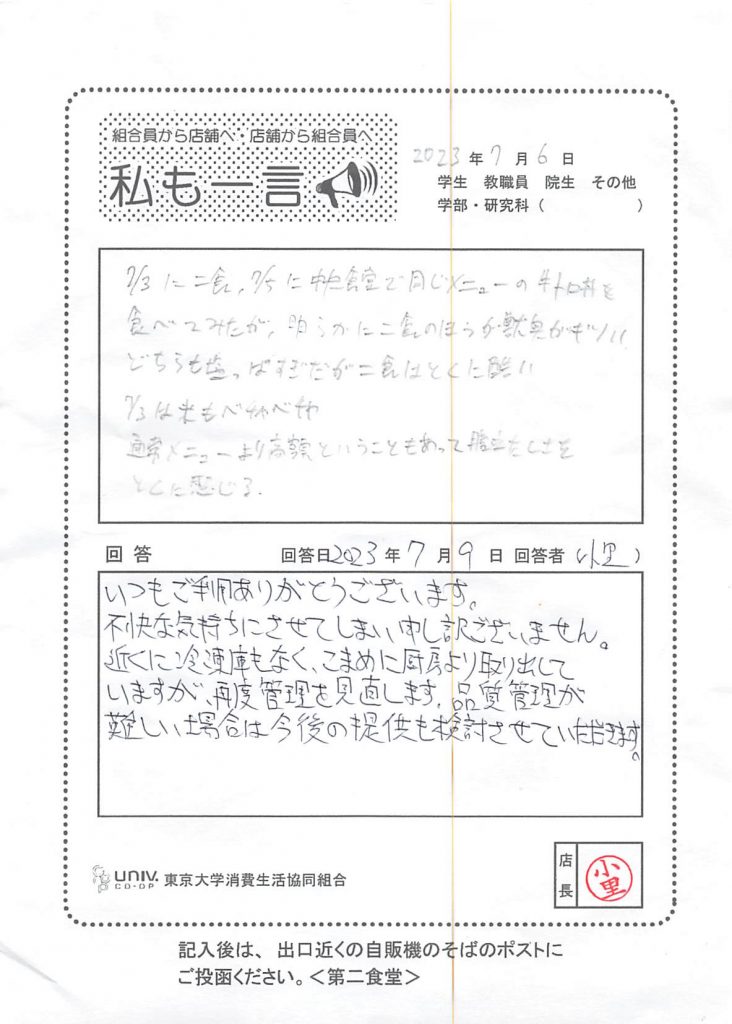 組合員から店舗へ・店舗から組合員へ
私も一言
2023 年 7 月 6 日
学生 教職員 院生 その他
学部・研究科（ ）
7/3 に二食, 7/5 に中央食堂で同じメニューの牛トロ丼を
食べてみたが, 明らかに二食のほうが獣臭がキツい
どちらも塩っぱすぎだが二食はとくに酷い
7/3は米もべちゃべちゃ
通常メニューより高額ということもあって腹立たしさを
とくに感じる.
回 答 回答日2023 年 7 月 9 日 回答者（小里）
いつもご利用ありがとうございます。
不快な気持ちにさせてしまい申し訳ございません。
近くに冷凍庫もなく、こまめに厨房より取り出して
いますが、再度管理を見直します。品質管理が
難しい場合は今後の提供も検討させていただきます。
店長
小里
UNIV. CO-OP 東京大学消費生活協同組合
記入後は、出口近くの自販機のそばのポストに
ご投函ください。＜第二食堂＞